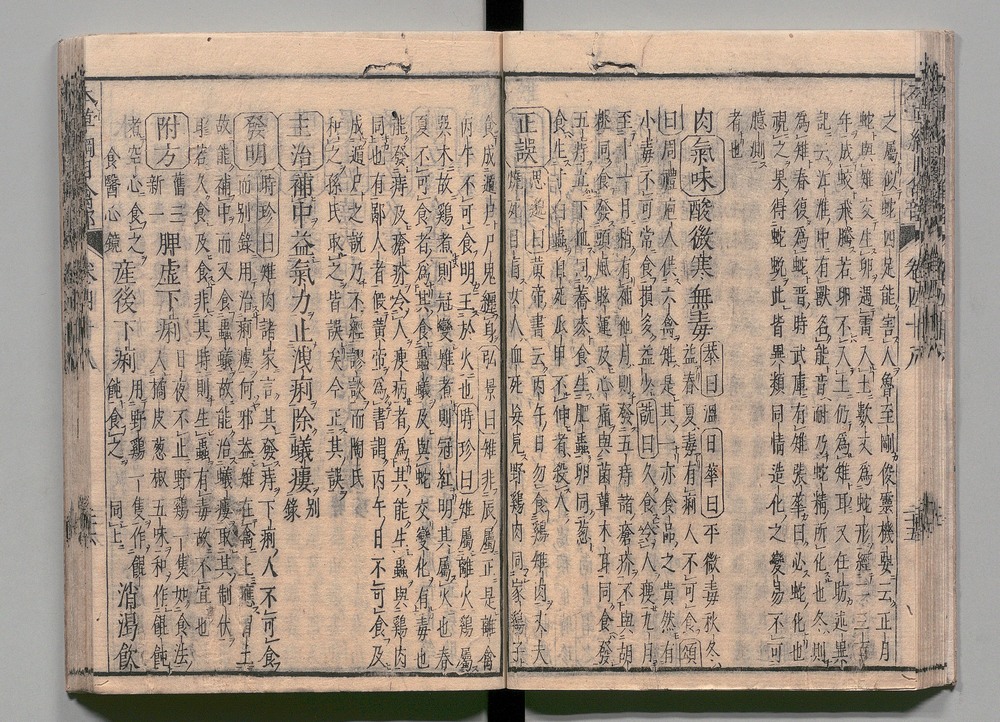 之屬似蛇四足能害人魯至剛俊靈機要云正月
蛇與雉交生卵遇雷入土數丈為蛇形經二三百
年成蛟飛騰若卵不入土仍為雉耳又任昉述異
記云江淮中有獸名能音耐乃蛇精所化也冬則
為雉春復為蛇晉時武庫有雉張華曰必蛇化也
視之果得蛇蛻此皆異類同情造化之變易不可
臆測
者也
肉氣味酸微寒無毒恭曰溫日華曰平微毒秋冬
益春夏毒有痢人不可食頌
曰周禮庖人供六禽雉是其一亦食品之貴然有
小毒不可常食損多益少詵曰久食令人瘦九月
至十一月稍有補他月則發五痔諸瘡疥不與胡
桃同食發頭風眩運及心痛與菌蕈木耳同食發
五痔立下血同蕎麥食生肥蟲卵同葱
食生寸白蟲自死爪甲不伸者殺人
正誤思邈曰黃帝書云丙午日勿食鷄雉肉丈夫
燒死目盲女人血死妄見野鷄肉同家鷄子
食成遁尸尸鬼纏身弘景曰雉非辰屬正是離禽
丙午不可食明王於火也時珍曰雉屬離火鷄屬
巽木故鷄煮則冠變雉煮則冠紅明其屬火也春
夏不可食者為其食蟲蟻及與蛇交變化有毒也
能發痔及瘡疥令人瘦病者為其能生蟲與鷄肉
同也有鄙人者假黃帝為書謂丙午日不可食及
成遁尸之說乃不經謬談而陶氏
和之孫氏取之皆誤矣今正其誤
主治補中益氣力止洩痢除蟻瘻別
錄
發明時珍曰雉肉諸家言其發痔下痢人不可食
而別錄用治痢瘻何邪蓋雉在禽上應胃土
故能補中而又食蟲蟻故能治蟻瘻取其制伏
耳若久食及食非其時則生蟲有毒故不宜也
附方舊三
新一脾虛下痢日夜不止野鷄一隻如食法
入橘皮葱椒五味和作餛飩
煮空心食之
食醫心鏡產後下痢用野鷄一隻作餛
飩食之同上消渴飲
本草綱目禽部 卷四十八